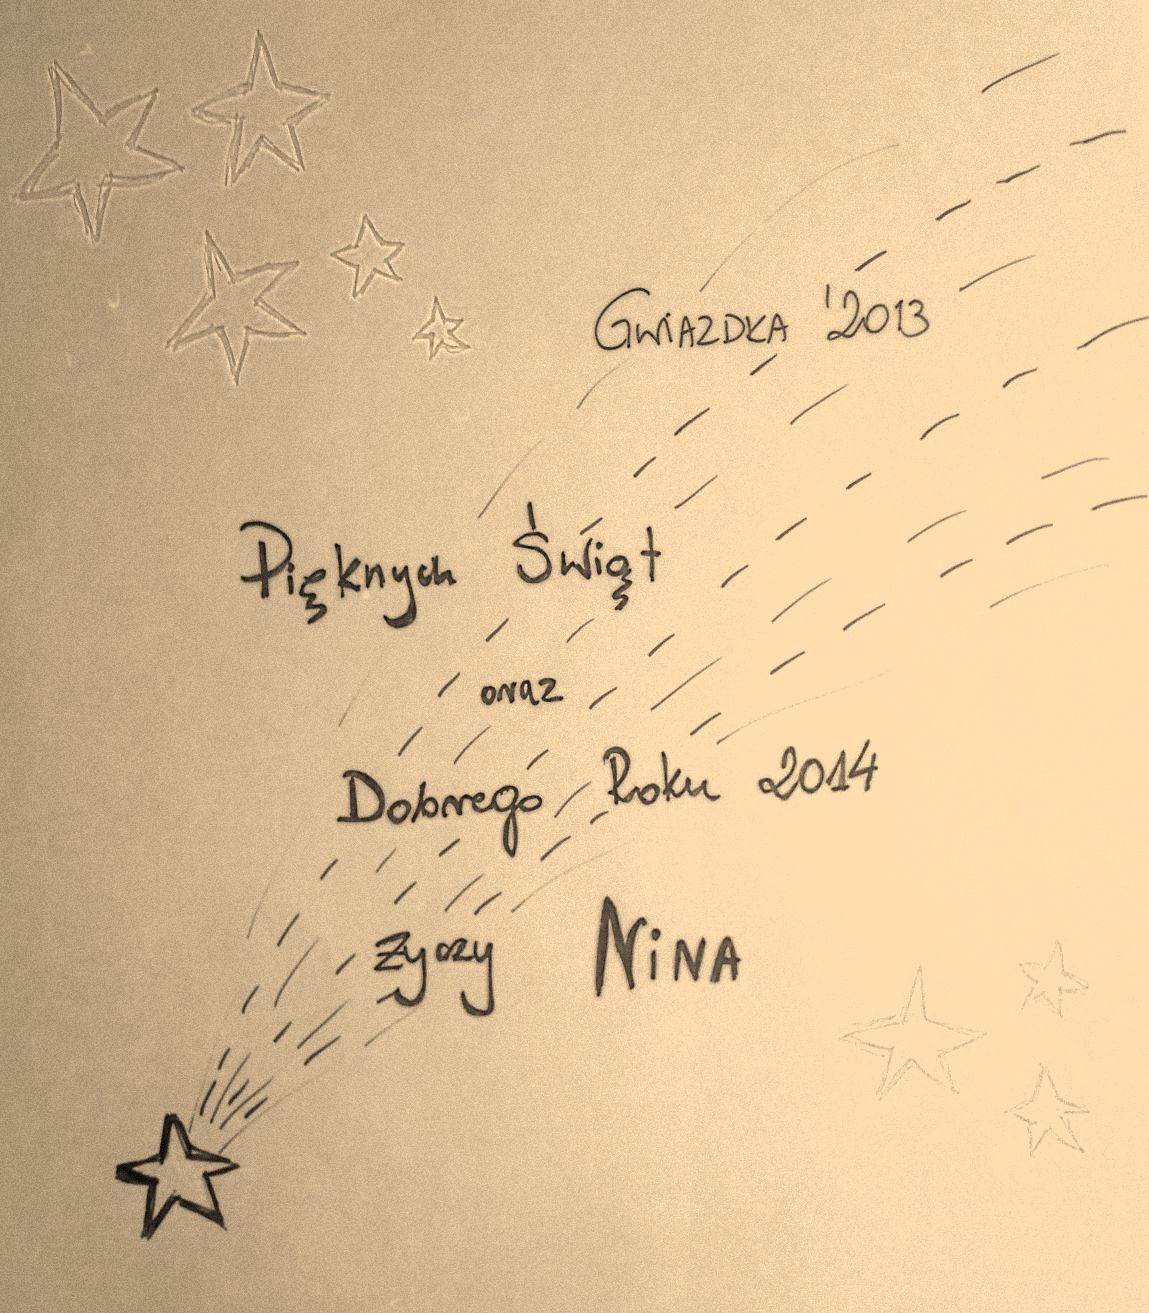 Gwiazdka '2013
Pięknych Świąt
oraz
Dobrego Roku 2014
życzy Nina